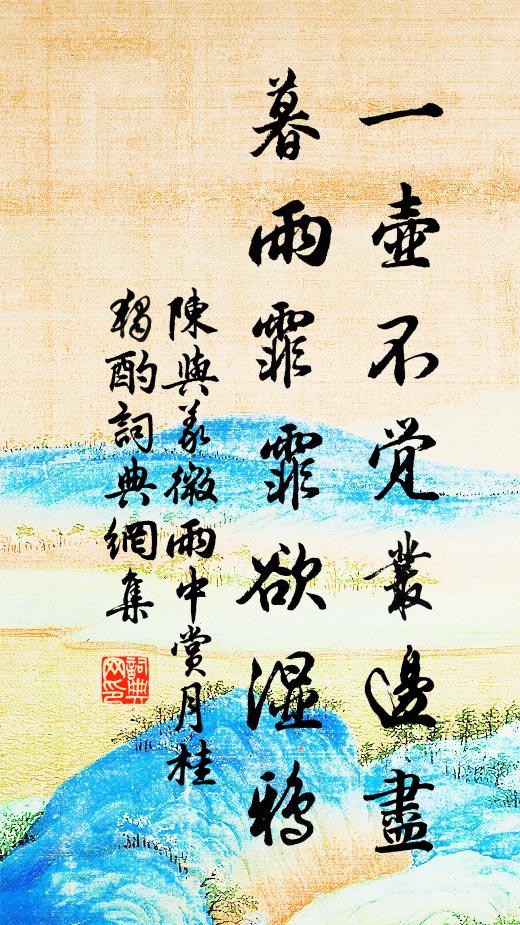 一壺不覺叢邊盡
暮雨霏霏欲濕鴉
陳與義微雨中賞月桂
獨酌詞典網集
詞典
网印